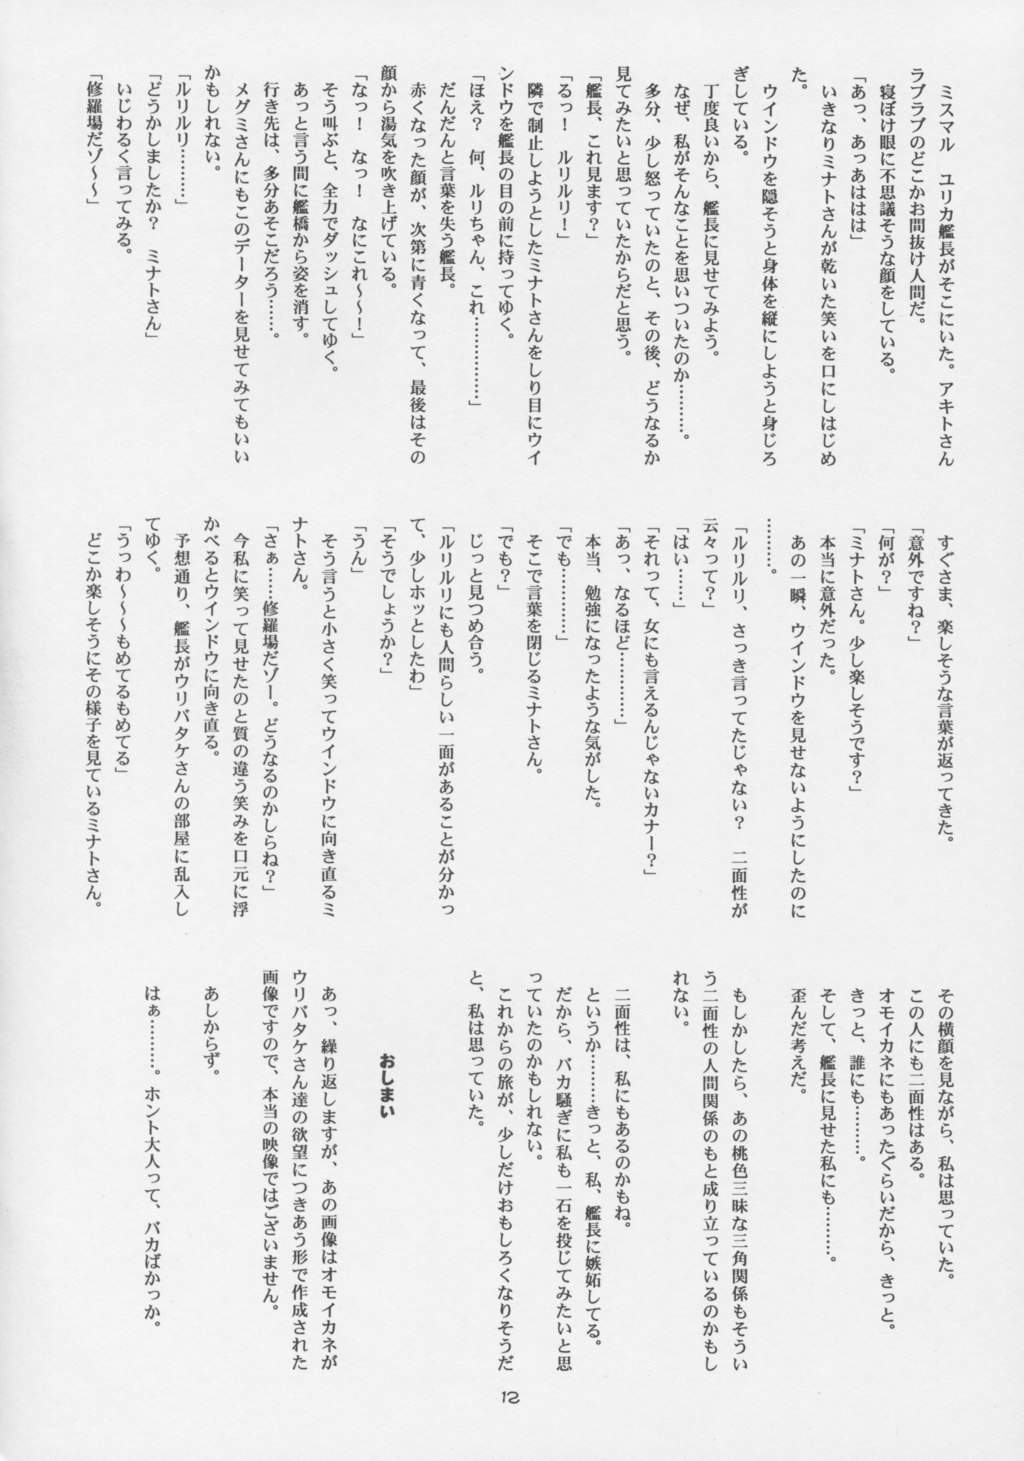 ミスマル　ユリカ艦長がそこにいた。アキトさん
ラブラブのどこかお間抜け人間だ。
寝ぼけ眼に不思議そうな顔をしている。
「あっ、あっあははは」
いきなりミナトさんが乾いた笑いを口にしはじめ
た。
ウインドウを隠そうと身体を縦にしようと身じろ
ぎしている。
丁度良いから、艦長に見せてみよう。
なぜ、私がそんなことを思いついたのか………。
多分、少し怒っていたのと、その後、どうなるか
見てみたいと思っていたからだと思う。
「艦長、これ見ます？」
「るっ！　ルリルリ！」
隣で制止しようとしたミナトさんをしり目にウイ
ンドウを艦長の目の前に持ってゆく。
「ほえ？　何、ルリちゃん、これ……………」
だんだんと言葉を失う艦長。
赤くなった顔が、次第に青くなって、最後はその
顔から湯気を吹き上げている。
「なっ！　なっ！　なにこれ～～！」
そう叫ぶと、全力でダッシュしてゆく。
あっと言う間に艦橋から姿を消す。
行き先は、多分あそこだろう……。
メグミさんにもこのデーターを見せてみてもいい
かもしれない。
「ルリルリ………」
「どうかしましたか？　ミナトさん」
いじわるく言ってみる。
「修羅場だゾ～～」
すぐさま、楽しそうな言葉が返ってきた。
「意外ですね？」
「何が？」
「ミナトさん。少し楽しそうです？」
本当に意外だった。
あの一瞬、ウインドウを見せないようにしたのに
………。
「ルリルリ、さっき言ってたじゃない？　二面性が
云々って？」
「はい……」
「それって、女にも言えるんじゃないカナー？」
「あっ、なるほど…………」
本当、勉強になったような気がした。
「でも…………」
そこで言葉を閉じるミナトさん。
「でも？」
じっと見つめ合う。
「ルリルリにも人間らしい一面があることが分かっ
て、少しホッとしたわ」
「そうでしょうか？」
「うん」
そう言うと小さく笑ってウインドウに向き直るミ
ナトさん。
「さぁ……修羅場だゾー。どうなるのかしらね？」
今私に笑って見せたのと質の違う笑みを口元に浮
かべるとウインドウに向き直る。
予想通り、艦長がウリバタケさんの部屋に乱入し
てゆく。
「うっわ～～～もめてるもめてる」
どこか楽しそうにその様子を見ているミナトさん。
その横顔を見ながら、私は思っていた。
この人にも二面性はある。
オモイカネにもあったぐらいだから、きっと。
きっと、誰にも………。
そして、艦長に見せた私にも………。
歪んだ考えだ。
もしかしたら、あの桃色三昧な三角関係もそうい
う二面性の人間関係のもと成り立っているのかもし
れない。
二面性は、私にもあるのかもね。
というか………きっと、私、艦長に嫉妬してる。
だから、バカ騒ぎに私も一石を投じてみたいと思
っていたのかもしれない。
これからの旅が、少しだけおもしろくなりそうだ
と、私は思っていた。
おしまい
あっ、繰り返しますが、あの画像はオモイカネが
ウリバタケさん達の欲望につきあう形で作成された
画像ですので、本当の映像ではございません。
あしからず。
はぁ………。ホント大人って、バカばかっか。
12